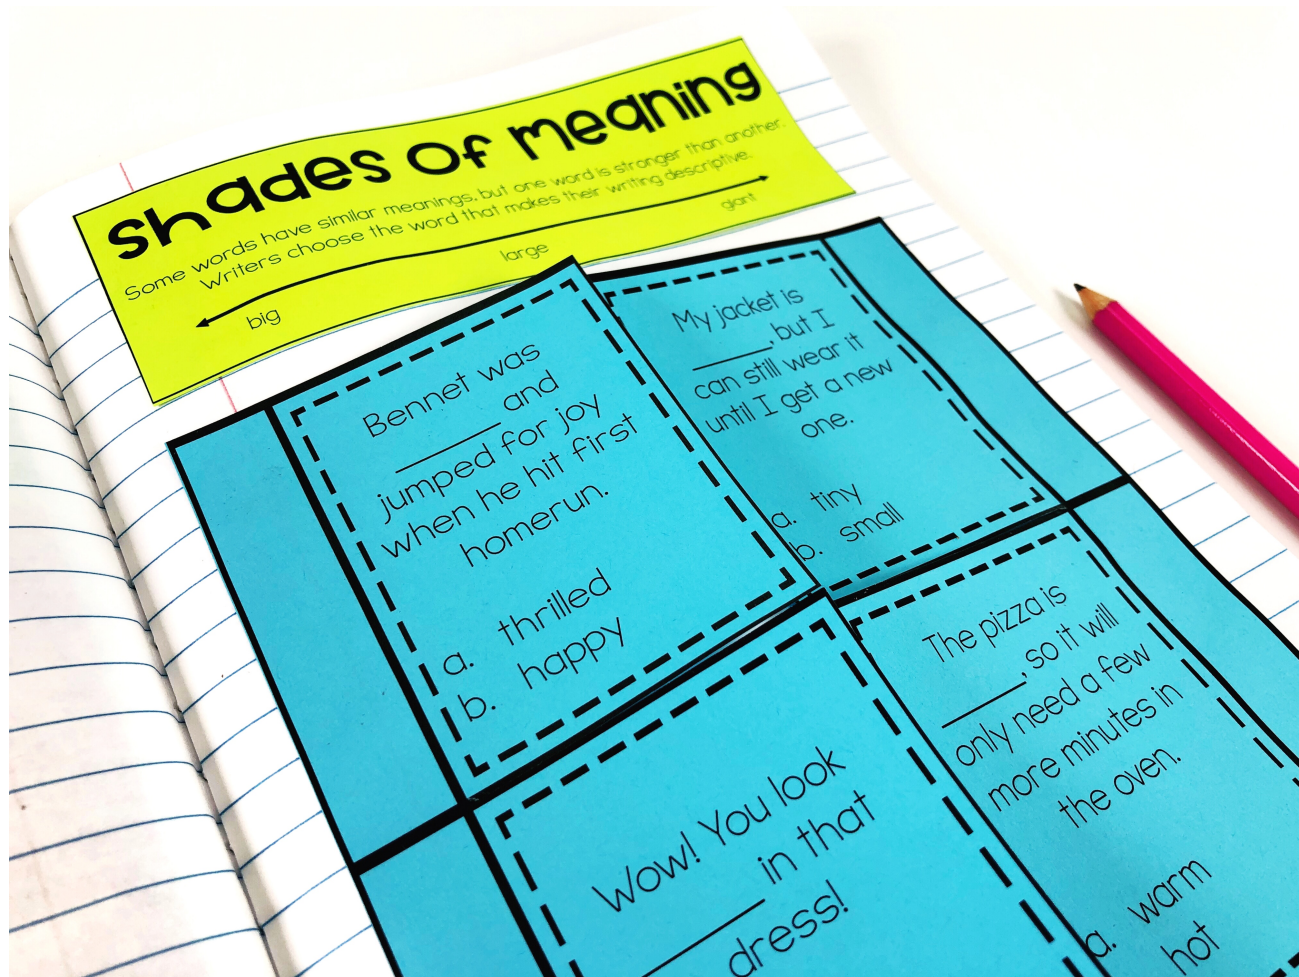 Shades of meaning
Some words have similar meanings, but one word is stronger than another.
Writers choose the word that makes their writing descriptive.
big large giant
Bennet was
______ and
jumped for joy
when he hit first
homerun.
a. thrilled
b. happy
My jacket is
______, but I
can still wear it
until I get a new
one.
a. tiny
b. small
Wow! You look
______ in that
dress!
The pizza is
______, so it will
only need a few
more minutes in
the oven.
a. warm
hot